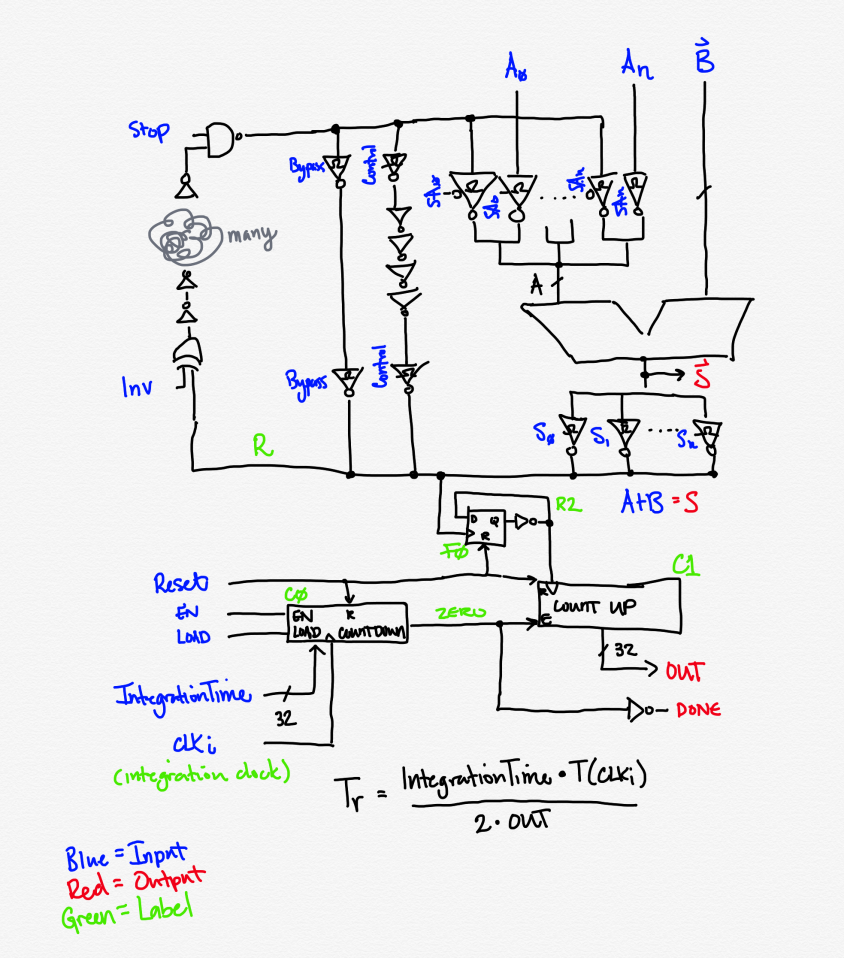 A₀
An
B⃗
Stop
Bypass
Control
SA₀
SA₀
.....
SAn
SAn
many
A
Inv
Bypass
Control
S⃗
S₀
S₁
.....
Sn
R
A+B = S
R2
D Q
R
F0
Reset
C0
C1
EN
EN
R
ZERO
R
COUNT UP
LOAD
LOAD
COUNTDOWN
E
32
OUT
IntegrationTime
32
DONE
CLKi
(integration clock)
Tr = IntegrationTime • T(CLKi)
2 • OUT
Blue = Input
Red = Output
Green = Label